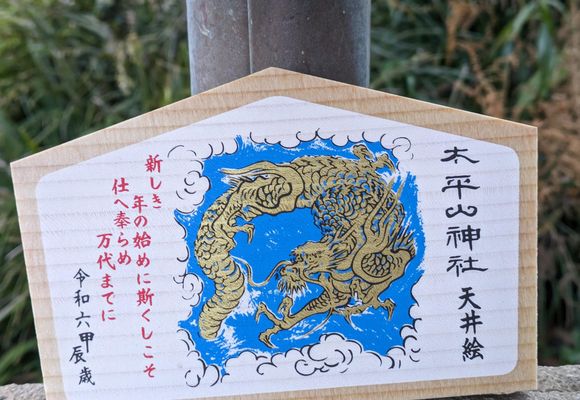 太平山神社 天井絵
新しき
年の始めに斯くしこそ
仕へ奉らめ
万代までに
令和六甲辰歳